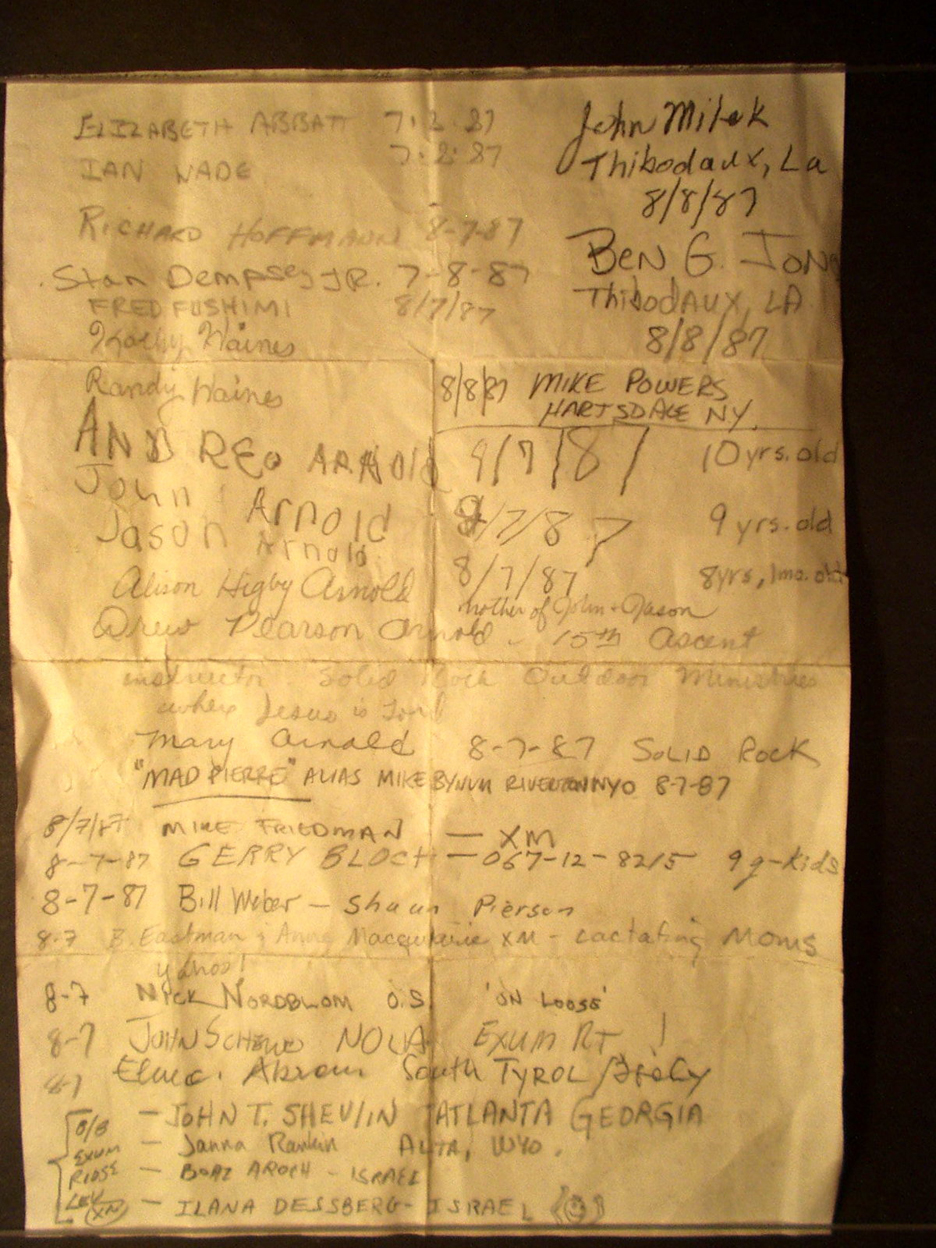 ELIZABETH ABBATT 7·2·87
IAN WADE 7·2·87
John Milek
Thibodaux, La
8/8/87
RICHARD HOFFMANN 8-7-87
BEN G. JON
THIBODAUX, LA
8/8/87
Stan Dempsey JR. 7-8-87
FRED FUSHIMI 8/7/87
Kathy Haines
Randy Haines
8/8/87 MIKE POWERS
HARTSDALE NY.
ARNOLD /7/87 10 yrs. old
John Arnold /7/87 9 yrs. old
Jason Arnold
Alison Higby Arnold 8/7/87 8yrs, 1mo. old
mother of John + Jason
Drew Pearson Arnold - 15th Ascent
instructor Solid Rock Outdoor Ministries
where Jesus is Lord
Mary Arnold 8-7-87 SOLID ROCK
"MAD PIERRE" ALIAS MIKE BYNUM RIVERTON WYO 8-7-87
8/7/87 MIKE FRIEDMAN — XM
8-7-87 GERRY BLOCH — 067-12-8215 9 g-kids
8-7-87 Bill Weber — Shaun Pierson
8-7 B. Eastman + Anne XM - Lactating Moms
yahoo!
8-7 NICK NORDBLOM O.S. 'ON LOOSE'
8-7 JOHN NOLA EXUM RT !
8-7 South TYROL /
8/8 — JOHN T. SHEVLIN ATLANTA GEORGIA
EXUM — Janna Rankin ALTA, WYO.
RIDGE — BOAZ AROCH - ISRAEL
XM — ILANA DESSBERG - ISRAEL